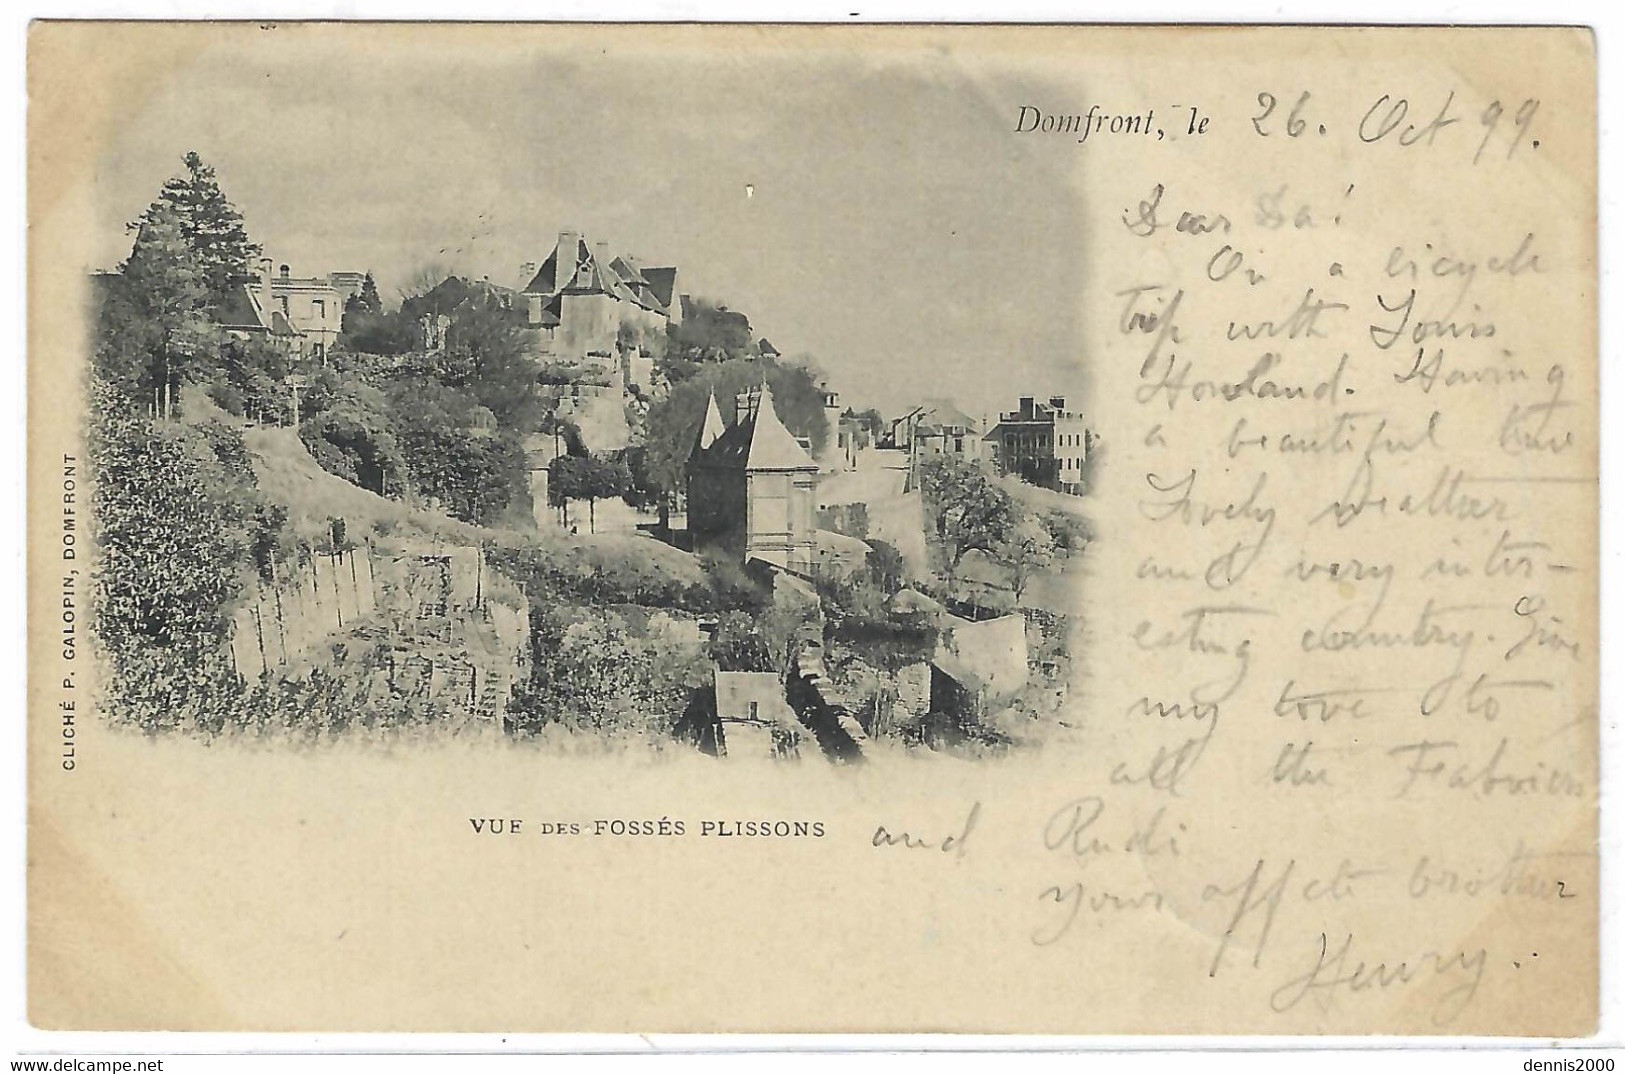 Domfront, le 26. Oct 99.
Dear Da!
On a bicycle
trip with Louis
Howland. Having
a beautiful time
Lovely weather
and very inter-
esting country. Give
my love to
all the
and Rudi
Your affcte brother
Henry.
VUE DES FOSSÉS PLISSONS
CLICHÉ P. GALOPIN, DOMFRONT
www.delcampe.net
dennis2000